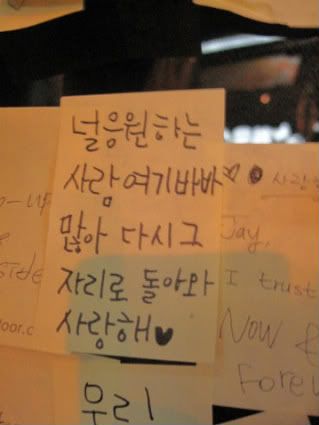 널응원하는
사람여기바바♡
많아 다시 그
자리로 돌아와
사랑해♥
우리
Jay,
I trust
Now &
Forev